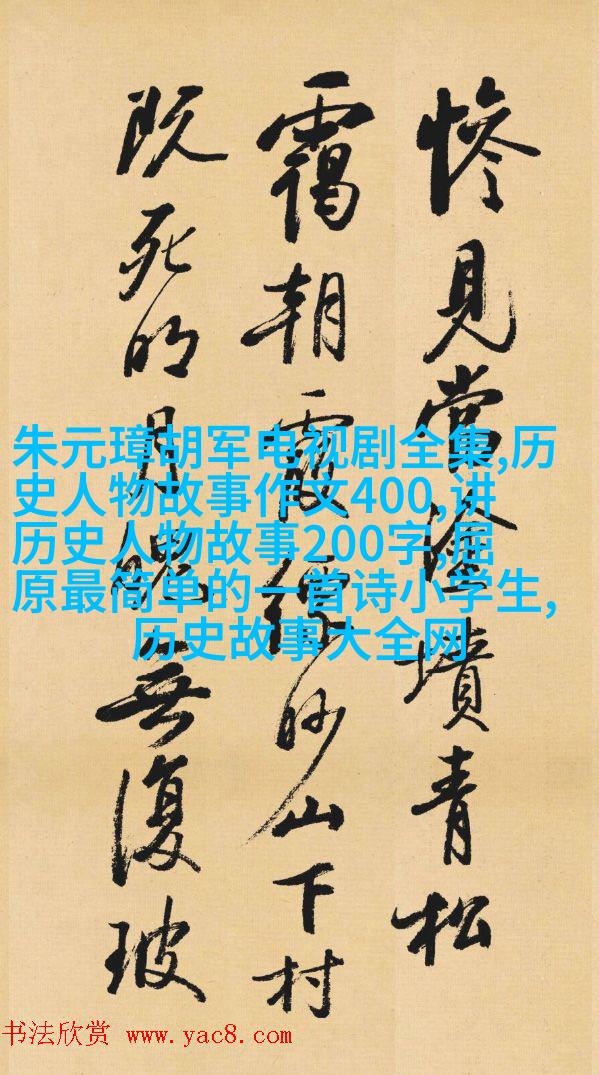 惨見當塗墳青松
靄朝霞縹眇山下村
既死明月魄無復玻
朱元璋胡军电视剧全集,历
史人物故事作文400,讲
历史人物故事200字,屈
原最简单的一首诗小学生,
历史故事大全网
书法欣赏 www.yac8.com